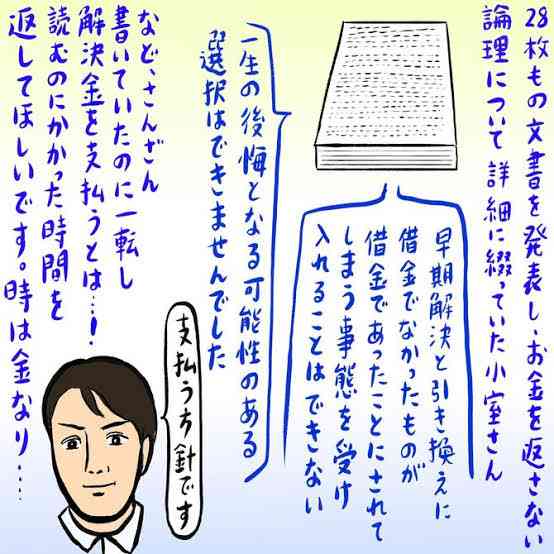 28枚もの文書を発表し、お金を返さない
論理について詳細に綴っていた小室さん
早期解決と引き換えに
借金でなかったものが
借金であったことにされて
しまう事態を受け
入れることはできない
一生の後悔となる可能性のある
選択はできませんでした
など、さんざん
書いていたのに一転し
解決金を支払うとは…!
読むのにかかった時間を
返してほしいです。時は金なり…
支払う方針です